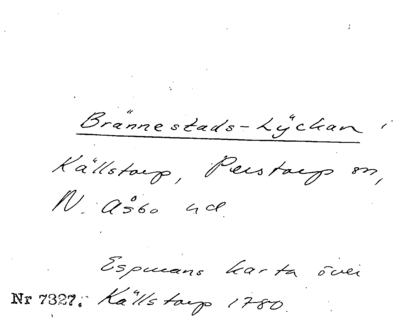 Brännestads-Lÿckan i
Källstorp, Perstorp sn,
N. Åsbo hd.
Espmans karta över
Nr 7327. Källstorp 1780.